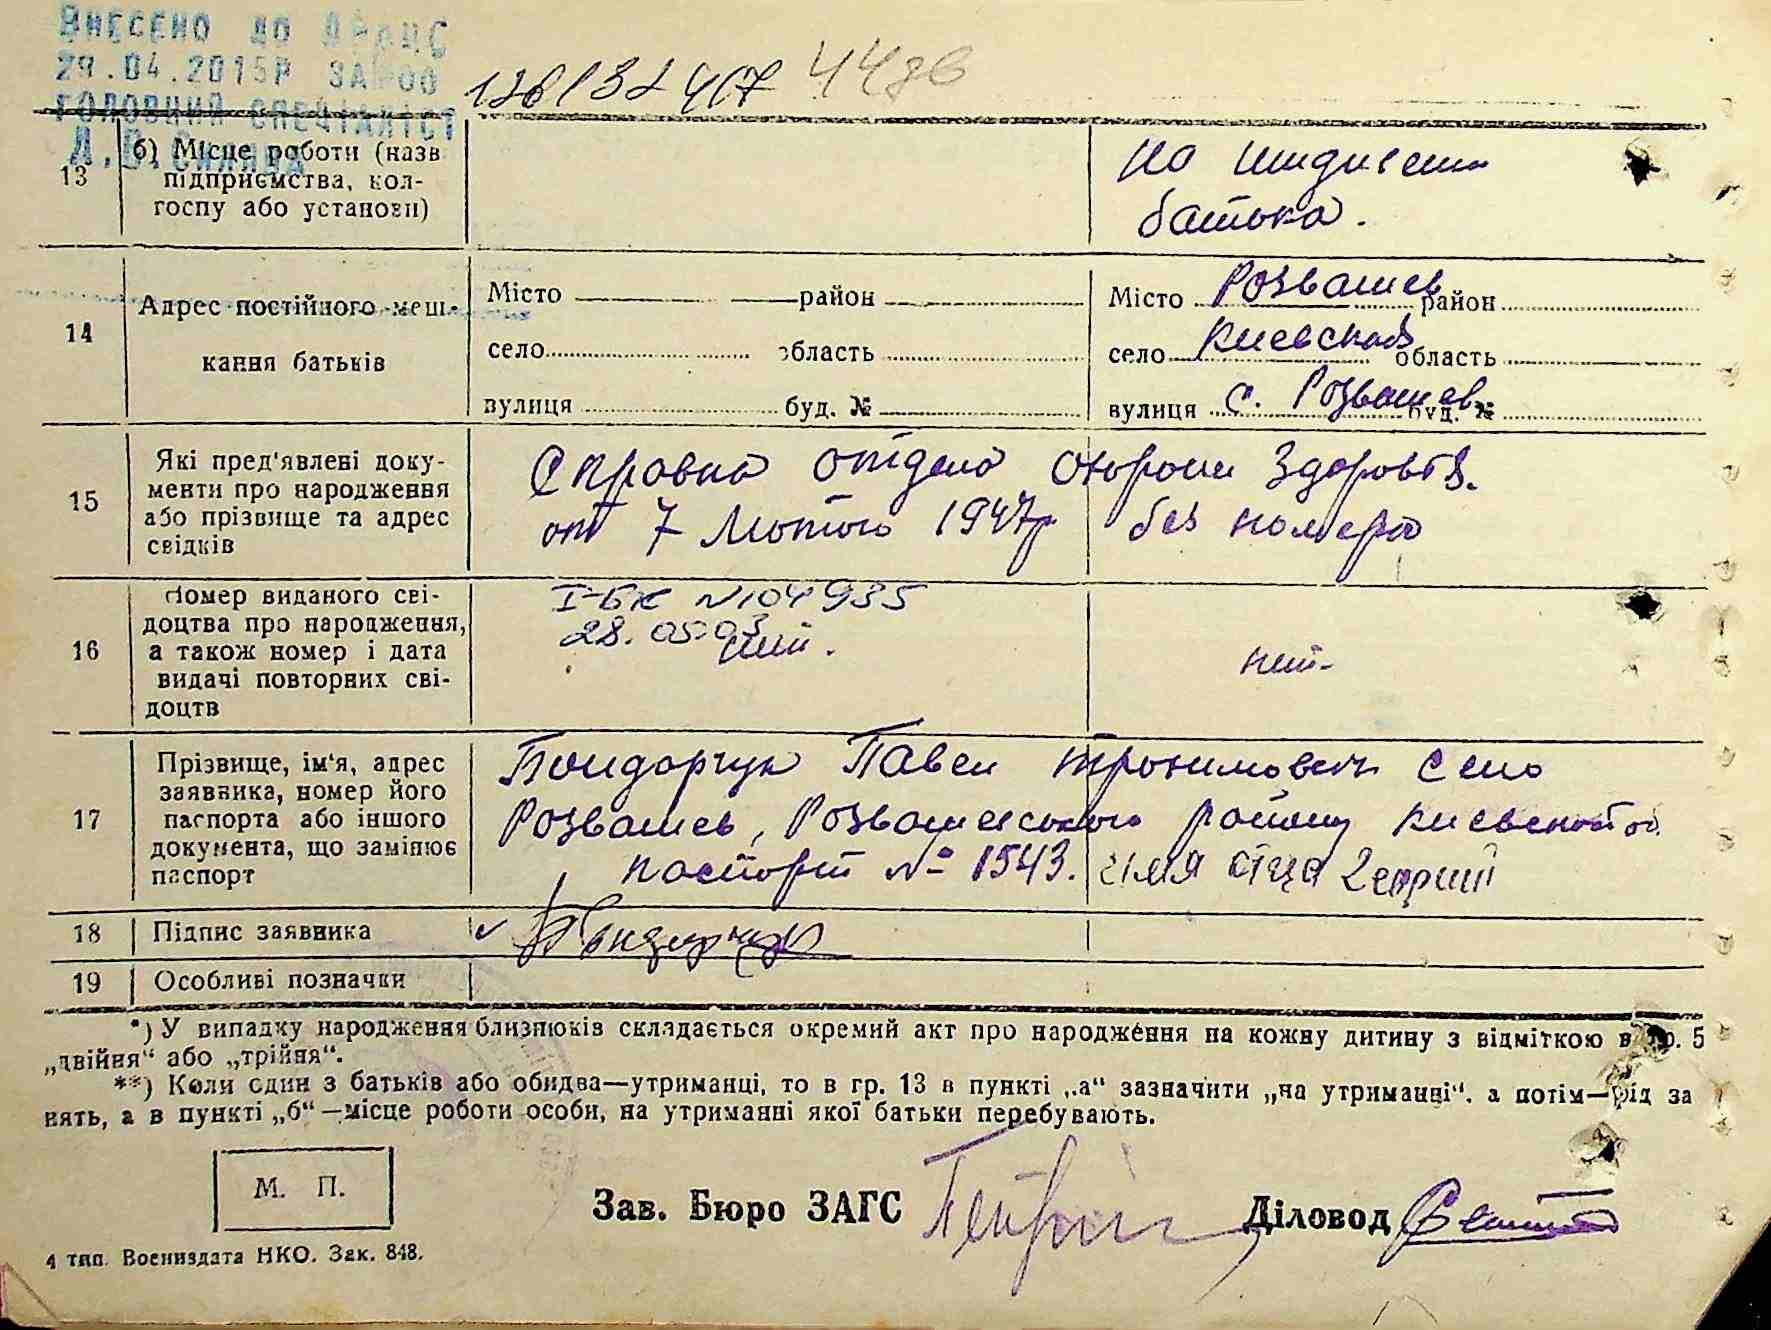 ВНЕСЕНО ДО ДРАЦС
29.04.2015Р ЗА №00
ГОЛОВНИЙ СПЕЦІАЛІСТ
13
б) Місце роботи (назв
підприємства, кол-
госпу або установи)
на иждивении
батька.
14
Адрес постійного меш-
кання батьків
Місто район
село область
вулиця буд. №
Місто Розважев район
село Киевской область
вулиця с. Розважев буд. №
15
Які пред'явлені доку-
менти про народження
або прізвище та адрес
свідків
Справка отдела охорони здоровья.
от 7 Лютого 1947р без номера
16
Номер виданого сві-
доцтва про народження,
а також номер і дата
видачі повторних сві-
доцтв
І-БК №104935
28.05.03
нит.
нит-
17
Прізвище, ім'я, адрес
заявника, номер його
паспорта або іншого
документа, що замінює
паспорт
Бондарчук Павел Трохимович село
Розважев, Розважевського району Киевской об.
паспорт № 1543. имя отца Георгий
18
Підпис заявника
Бондарчук
19
Особливі позначки
*) У випадку народження близнюків складається окремий акт про народження на кожну дитину з відміткою в гр. 5
„двійня“ або „трійня“.
**) Коли один з батьків або обидва—утриманці, то в гр. 13 в пункті „а“ зазначити „на утриманні“. а потім—рід за
нять, а в пункті „б“—місце роботи особи, на утриманні якої батьки перебувають.
М. П.
Зав. Бюро ЗАГС
Діловод
4 тип. Воениздата НКО. Зак. 848.